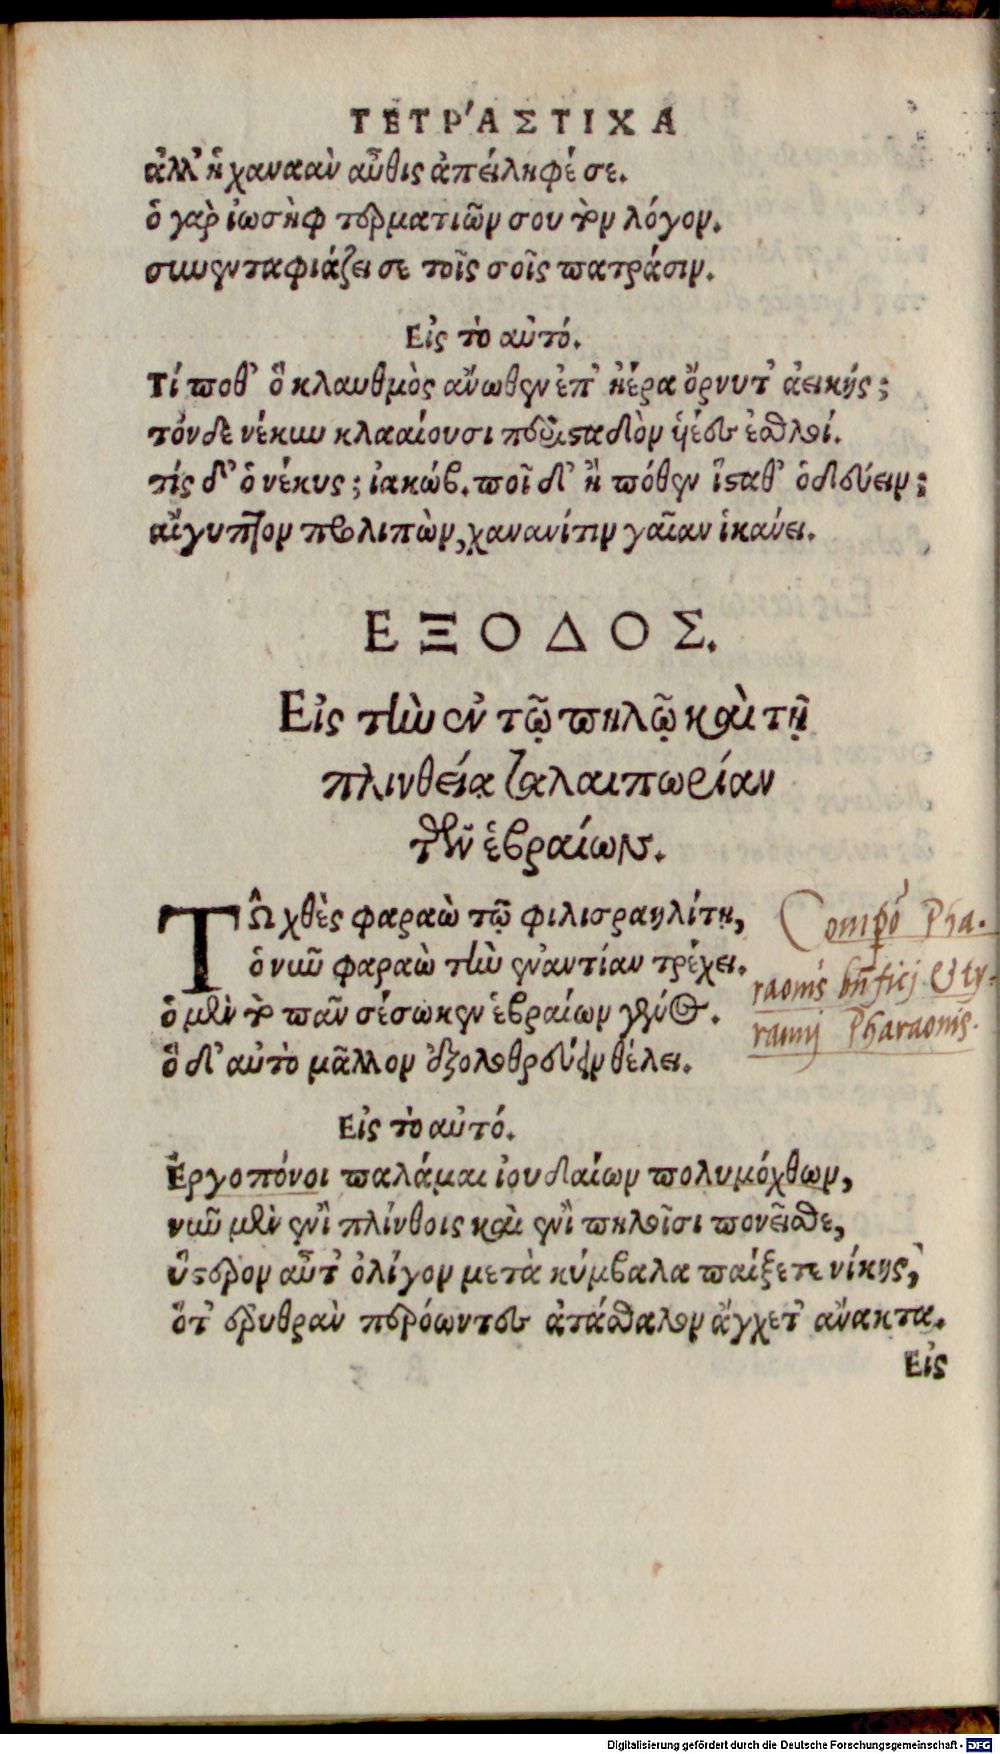 ΤΕΤΡΆΣΤΙΧΑ
ἀλλ' ἡ χαναὰν αὖθις ἀπείληφέ σε.
ὁ γὰρ ἰωσὴφ τερματιῶν σου τὸν λόγον.
συνενταφιάζει σε τοῖς σοῖς πατράσιν.
Εἰς τὸ αὐτό.
Τί ποθ' ὁ κλαυθμὸς ἄνωθεν ἐπ' ἠέρα ὄρνυτ' ἀεικής;
τόνδε νέκυν κλααίουσι περιστᾳδὸν ἡέες ἐσθλοί.
τίς δ' ὁ νέκυς; ἰακώβ. ποῖ δ' ἢ πόθεν ἵσταθ' ὁδεύειν;
αἴγυπτον προλιπὼν, χανανίτιν γαῖαν ἱκάνει.
ΕΞΟΔΟΣ.
Εἰς τὴν ἐν τῷ πηλῷ καὶ τῇ
πλινθείᾳ ταλαιπωρίαν
τῶν ἑβραίων.
ΤΩ͂ χθὲς φαραὼ τῷ φιλισραηλίτῃ,
ὁ νῦν φαραὼ τὴν ἐναντίαν τρέχει.
ὁ μὲν τὸ πᾶν σέσωκεν ἑβραίων γένος.
ὃ δ' αὐτὸ μᾶλλον ἐξολοθρεύειν θέλει.
Compo Pha.
raonis bnficij & ty-
ranni Pharaonis.
Εἰς τὸ αὐτό.
Εργοπόνοι παλάμαι ἰουδαίων πολυμόχθων,
νῦν μὲν ἐνὶ πλίνθοις καὶ ἐνὶ πηλοῖσι πονεῖσθε,
ὕστερον αὖτ' ὀλίγον μετὰ κύμβαλα παίξετε νίκης,
ὅτ' ἐρυθρὰν περόωντες ἀτάσθαλον ἄγχετ' ἄνακτα.
Εἰς
Digitalisierung gefördert durch die Deutsche Forschungsgemeinschaft - DFG